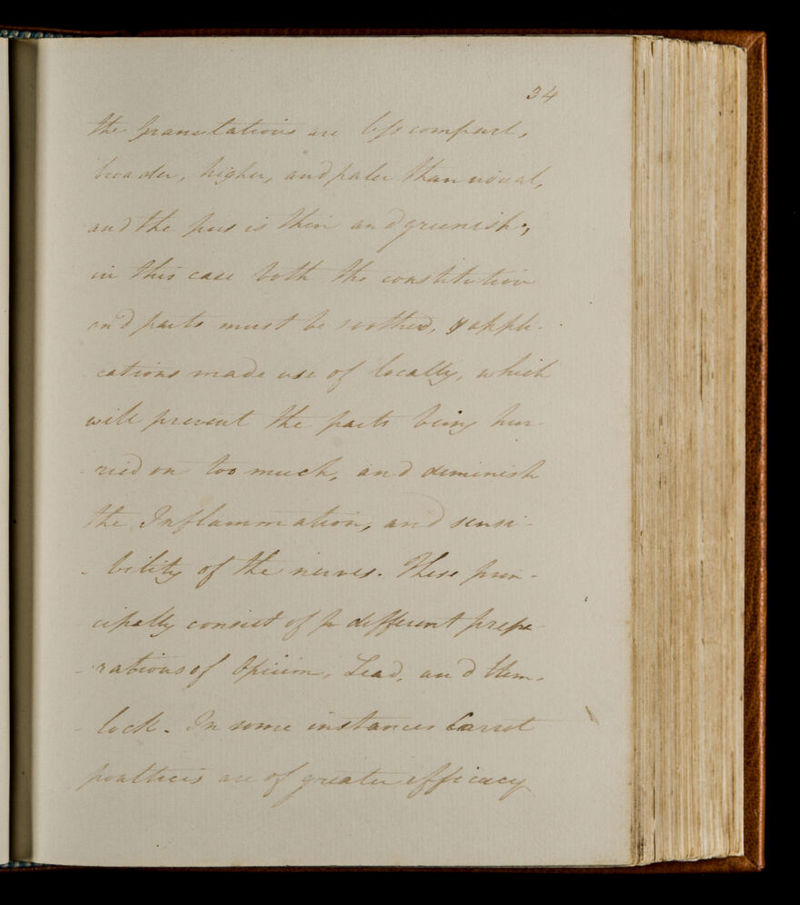 34
the Granulations are less compact,
broader, higher, and paler than usual,
and the pus is thin and greenish,
in this case both the constitution
and parts must be soothed, & appli-
cations made use of locally, which
will prevent the parts being hur-
ried on too much, and diminish
the Inflammation, and sensi-
- bility of the nerves. These prin-
cipally consist of different prepa-
- rations of Opium, Lead, and Hem-
- lock. In some instances Carrot
poultices are of greater efficacy